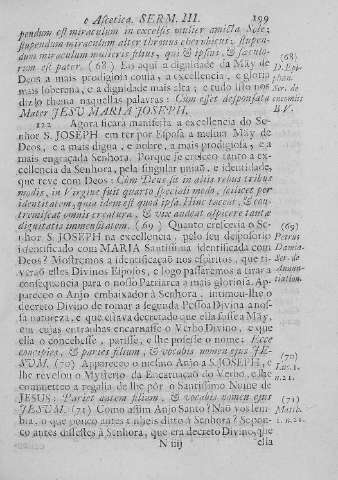 e Ascetica. SERM. III. 199
pendum est miraculum in excelsis mulier amicta Sole;
stupendum miraculum alter thronus cherubicus; stupen-
dum miraculum mulieris filius, qui & ipsius, & sæculo-
rum est pater. (68) Eis aqui a dignidade da Mãy de
Deos a mais prodigiosa cousa, a excellencia, e gloria
mais soberana, e a dignidade mais alta; e tudo isto nos
diz o thema naquellas palavras: Cum esset desponsata
Mater JESU MARIA JOSEPH.
(68)
D. Epi-
phan.
Ser. de
encomiis
B. V.
122 Agora ficara manifesta a excellencia do Se-
nhor S. JOSEPH em ter por Esposa a mesma Mãy de
Deos, e a mais digna, e nobre, a mais prodigiosa, e a
mais engraçada Senhora. Porque se cresceo tanto a ex-
cellencia da Senhora, pela singular uniaõ, e identidade,
que teve com Deos: Cùm Deus sit in aliis rebus tribus
modis, in Virgine fuit quarto speciali modo, scilicet per
identitatem, quia idem est quod ipsa. Hinc taceat, & con-
tremiscat omnis creatura, & vix audeat aspicere tantæ
dignitatis immensitatem. (69) Quanto cresceria o Se-
nhor S. JOSEPH na excellencia, pelo seu desposorio
identificado com MARIA Santissima identificada com
Deos? Mostremos a identificaçaõ nos espiritos, que ti-
veraõ elles Divinos Esposos, e logo passaremos a tirar a
consequencia para o nosso Patriarca a mais gloriosa. Ap-
pareceo o Anjo embaixador à Senhora, intimou-lhe o
decreto Divino de tomar a segunda Pessoa Divina a nos-
sa natureza, e que estava decretado que ella fosse a Mãy,
em cujas entranhas encarnasse o Verbo Divino, e que
ella o concebesse, parisse, e lhe posesse o nome: Ecce
concipies, & paries filium, & vocabis nomen ejus JE-
SUM. (70) Appareceo o mesmo Anjo a S. JOSEPH, e
lhe revelou o Mysterio da Encarnaçaõ do Verbo, e lhe
commetteo a regalia de lhe pôr o Santissimo Nome de
JESUS: Pariet autem filium, & vocabis nomen ejus
JESUM. (71) Como assim Anjo Santo? Naõ vos lem-
bra, o que pouco antes tinheis ditto à Senhora? Se pou-
co antes dissestes à Senhora, que era decreto Divino, que
(69)
Petrus
Damia.
Ser. de
Anun-
tiation.
(70)
Luc. 1.
n. 21.
(71)
Matth.
1. n. 21.
N iiij ella